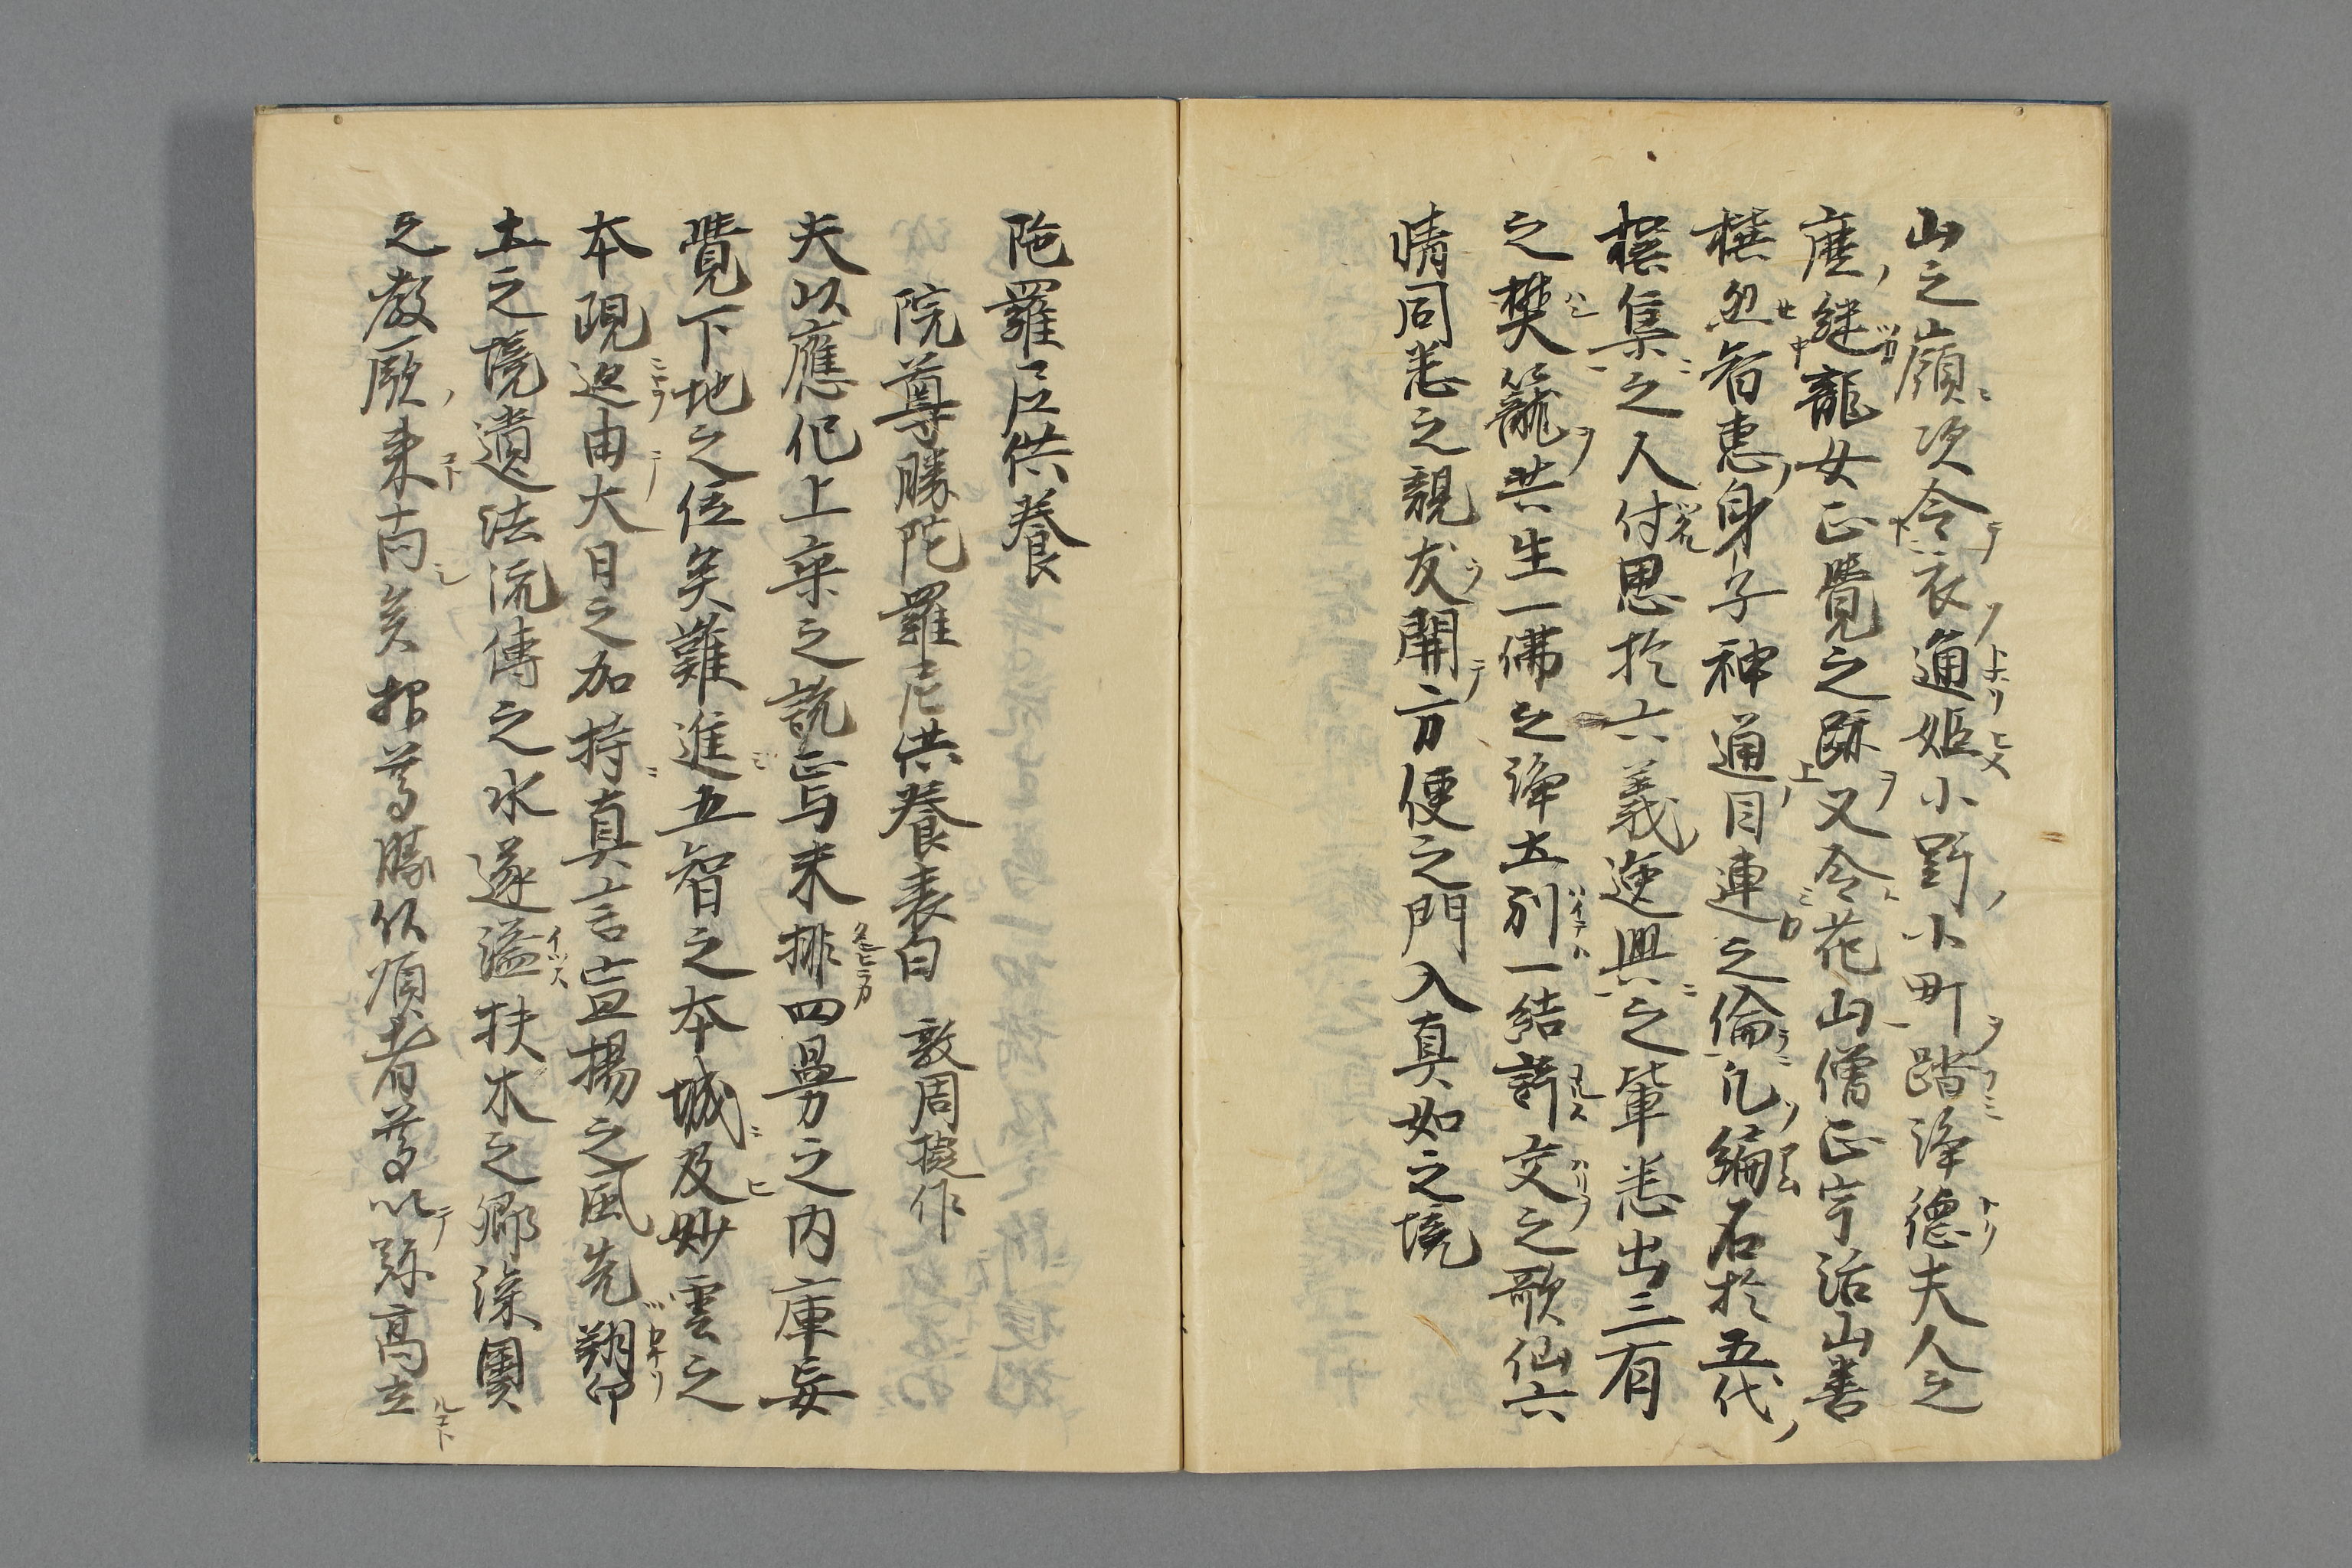 山之嶺次令衣通姫小野小町踏浄德夫人之
塵継龍女正覺之跡又令花山僧正宇治山善
撰忽智惠身子神通目連之倫凡編名於五代
撰集之人付思於六義遊興之輩悉出三有
之樊籠共生一佛之浄土別一結許交之歌仙六
情同恙之親友開方便之門入真如之境
陁羅尼供養
院尊勝陀羅尼供養表白 敦周擬作
夫以應化上乘之說旨未排四曼之内庫妄
覺下地之位矣難進五智之本城及妙雲之
本現迩由大日之加持真言宣揚之風先翔印
土之境遺法流傳之水遂溢扶木之鄉深奧
之教厥来尚矣抑尊勝佉頂者尊以弥高立